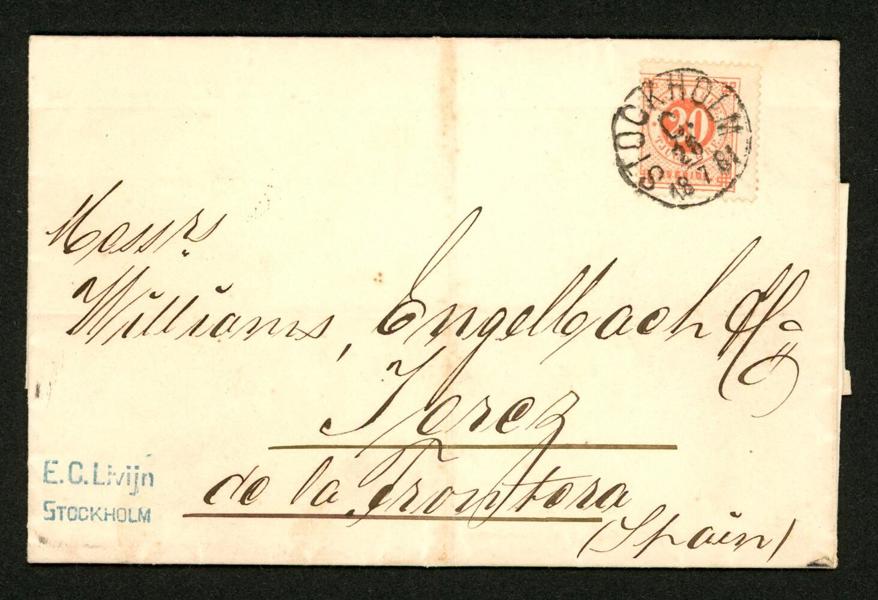 STOCKHOLM
18 7 81
20
Messrs
Williams, Engelbach & Co
Jerez
de la Frontera
(Spain)
E. C. Livijn
STOCKHOLM